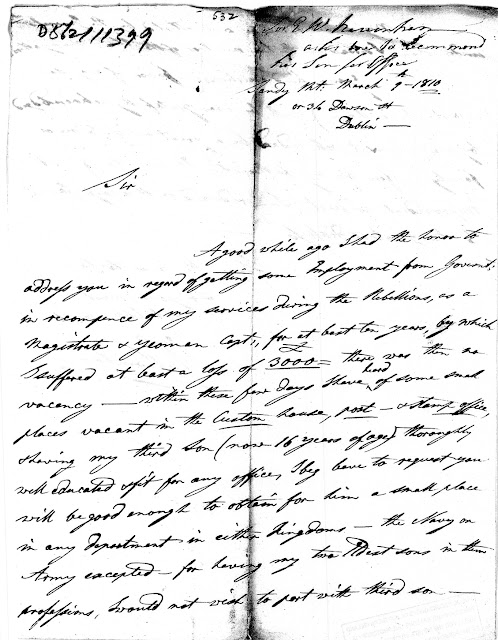 D562/11399
532
asks me to recommend
his Son for Office
Sandy Mt. March 9th - 1810
or 36 Dawson St
Dublin —
Sir
A good while ago I had the honor to
address you in regard of getting some Employment from Governt.
in recompence of my services during the Rebellions, as a
Magistrate & Yeoman Capt:, for at least ten years, by which
I suffered at least a loss of £3000= there was then no
vacancy — within these few days I have heard of some small
places vacant in the Custom house, post — & stamp office,
& having my third son (now 16 years of age) thoroughly
well educated & fit for any office, I beg leave to request you
will be good enough to obtain for him a small place
in any Department in either Kingdoms — the Navy or
Army excepted — for having my two Eldest sons in them
professions, I would not wish to part with third son —